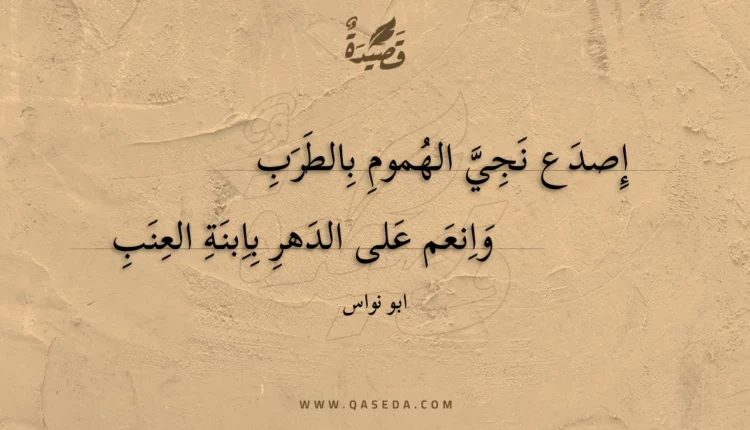 قَصِيدَةٌ
إِصدَع نَجِيَّ الهُمومِ بِالطَرَبِ
وَاِنعَم عَلى الدَهرِ بِاِبنَةِ العِنَبِ
ابو نواس
WWW.QASEDA.COM